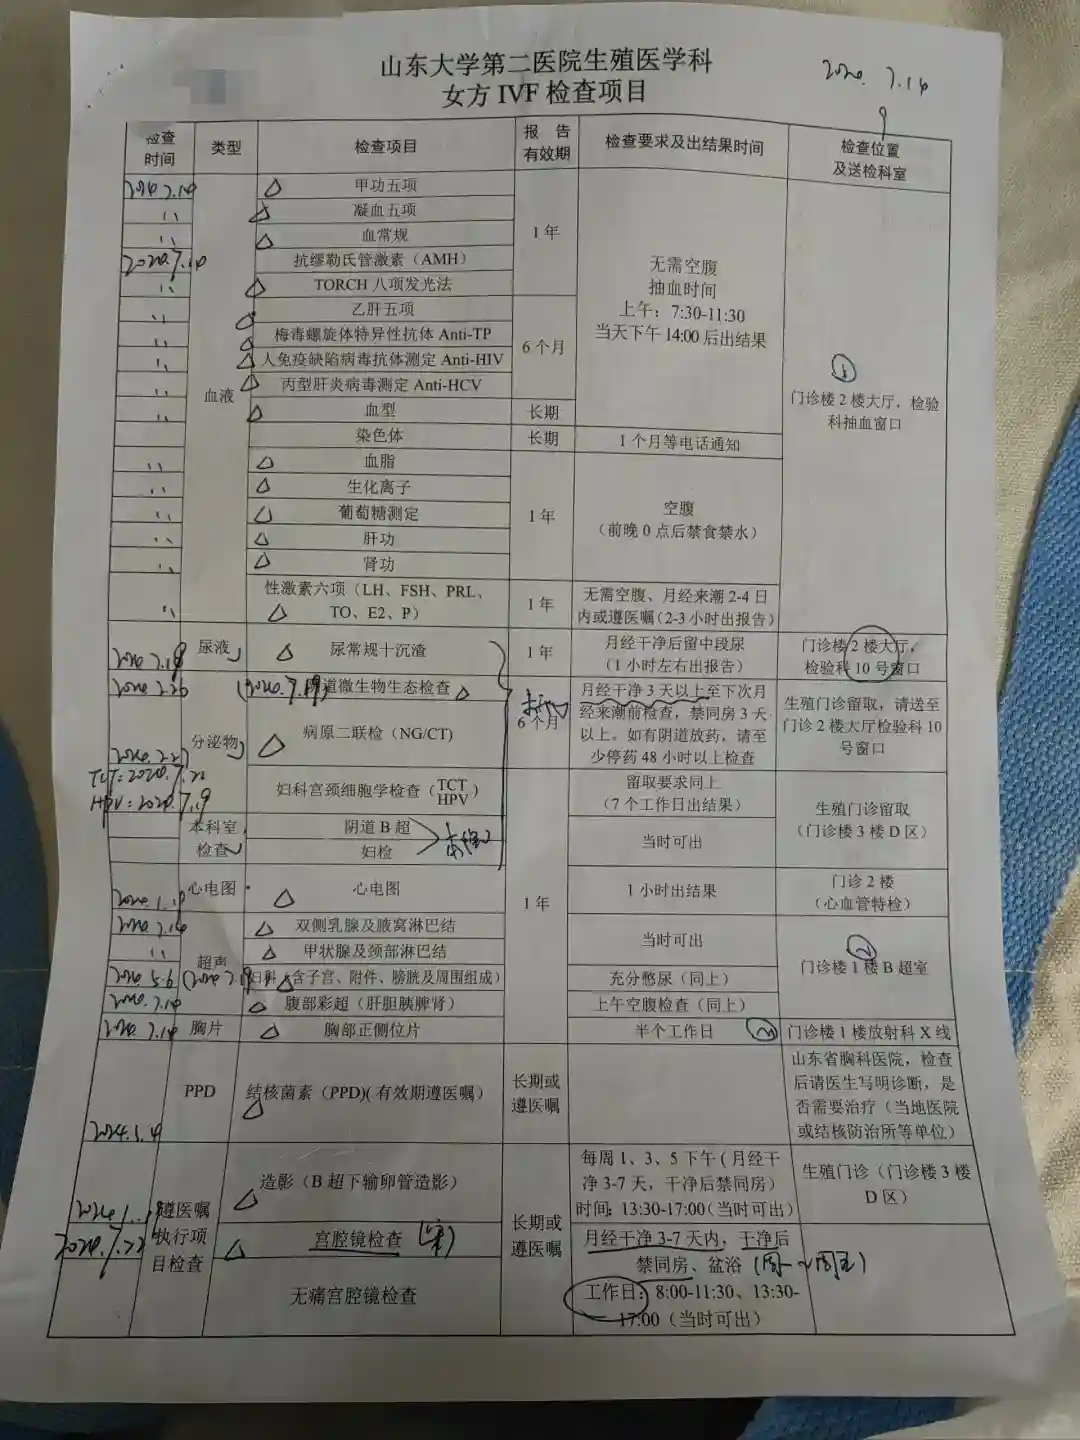 山东大学第二医院生殖医学科
女方 IVF 检查项目
检查时间 类型 检查项目 报告有效期 检查要求及出结果时间 检查位置及送检科室
甲功五项
凝血五项
血常规
1年
抗缪勒氏管激素（AMH）
TORCH 八项发光法
无需空腹
抽血时间
上午：7:30-11:30
当天下午 14:00 后出结果
乙肝五项
梅毒螺旋体特异性抗体 Anti-TP
人免疫缺陷病毒抗体测定 Anti-HIV
6个月
丙型肝炎病毒测定 Anti-HCV
血液
①
门诊楼 2 楼大厅，检验
科抽血窗口
血型 长期
染色体 长期 1个月等电话通知
血脂
生化离子
葡萄糖测定
肝功
肾功
1年
空腹
（前晚 0 点后禁食禁水）
性激素六项（LH、FSH、PRL、
TO、E2、P）
1年
无需空腹、月经来潮 2-4 日
内或遵医嘱（2-3 小时出报告）
尿液 尿常规十沉渣 1年
月经干净后留中段尿
（1 小时左右出报告）
门诊楼 2 楼大厅，
检验科 10 号窗口
分泌物
阴道微生物生态检查
病原二联检（NG/CT)
6个月
月经干净 3 天以上至下次月
经来潮前检查，禁同房 3 天
以上。如有阴道放药，请至
少停药 48 小时以上检查
生殖门诊留取，请送至
门诊 2 楼大厅检验科 10
号窗口
TCT=2020.7.22
HPV=2020.7.19
妇科宫颈细胞学检查（TCT HPV）
留取要求同上
（7 个工作日出结果）
生殖门诊留取
（门诊楼 3 楼 D 区）
本科室
检查
阴道 B 超
妇检
当时可出
心电图 心电图 1小时出结果
门诊 2 楼
（心血管特检）
1年
超声
双侧乳腺及腋窝淋巴结
甲状腺及颈部淋巴结
当时可出
妇科（含子宫、附件、膀胱及周围组成） 充分憋尿（同上）
腹部彩超（肝胆胰脾肾） 上午空腹检查（同上）
②
门诊楼 1 楼 B 超室
胸片 胸部正侧位片 半个工作日 门诊楼 1 楼放射科 X 线
PPD 结核菌素（PPD)(有效期遵医嘱）
长期或
遵医嘱
山东省胸科医院，检查
后请医生写明诊断，是
否需要治疗（当地医院
或结核防治所等单位）
遵医嘱
执行项
目检查
造影（B 超下输卵管造影）
每周 1、3、5 下午（月经干
净 3-7 天，干净后禁同房）
时间：13:30-17:00（当时可出）
生殖门诊（门诊楼 3 楼
D 区）
长期或
遵医嘱
2020.7.22
宫腔镜检查
月经干净 3-7 天内，干净后
禁同房、盆浴（周一~周五）
无痛宫腔镜检查
工作日：8:00-11:30、13:30-
17:00（当时可出）